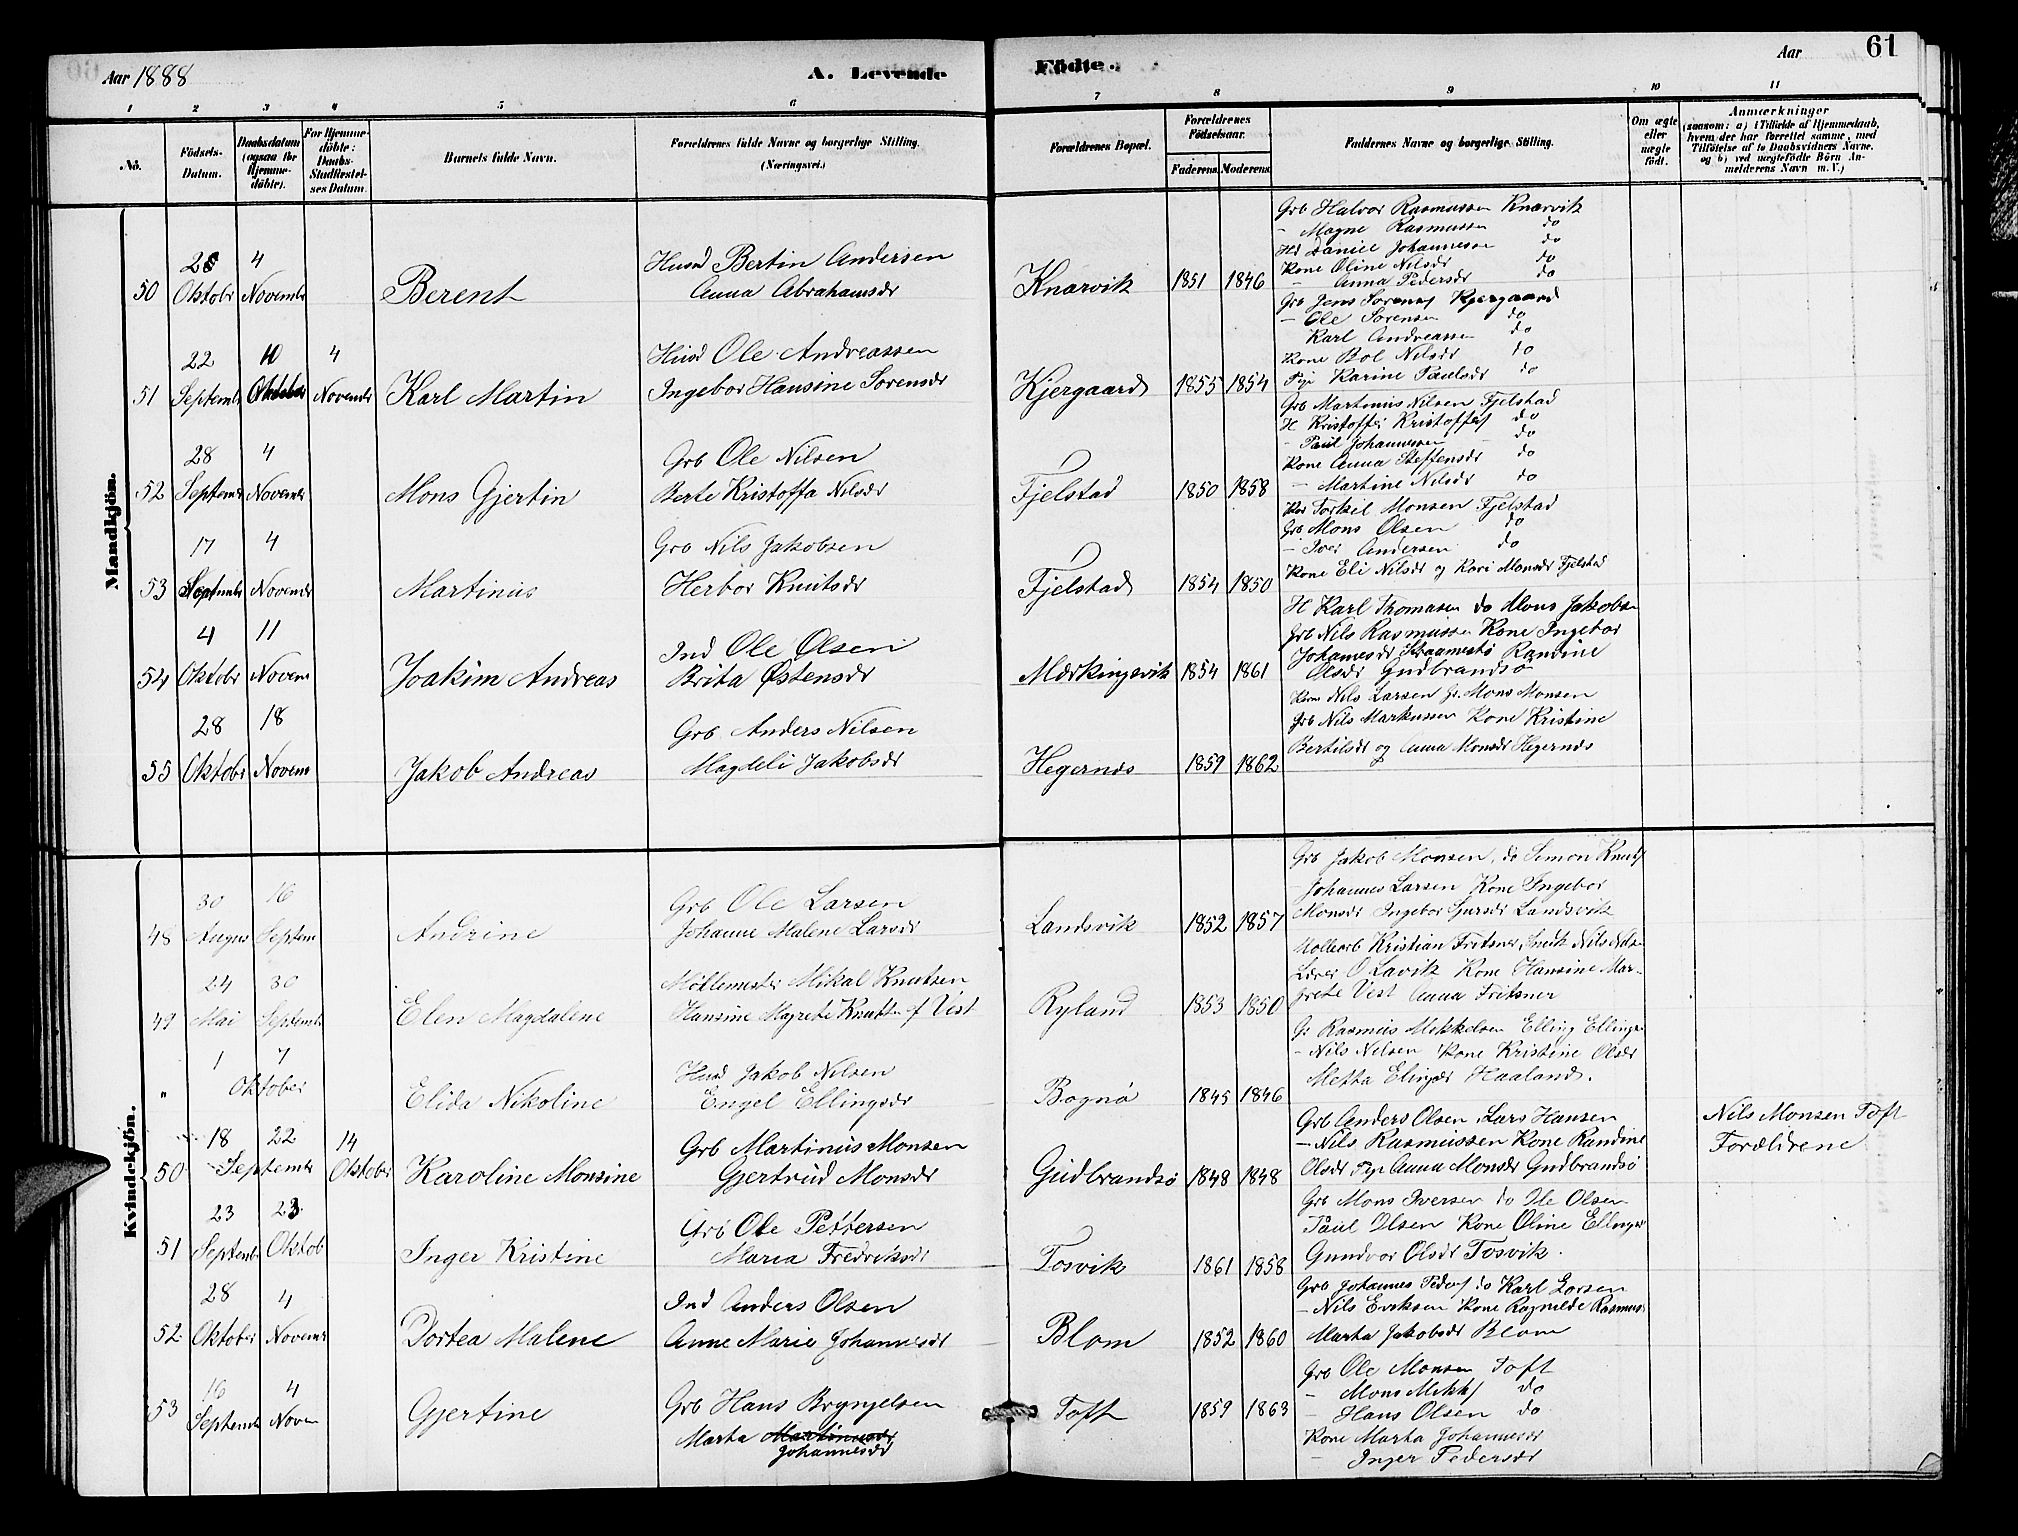 Aar 1888
A. Levende
Födte.
Aar
61
1 2 3 4 5 6 7 8 9 10 11
No.
Födsels-Datum.
Daabsdatum (ogsaa for Hjemmedöbte).
For Hjemmedöbte: Daabs-Stadfæstelses Datum.
Barnets fulde Navn.
Forældrenes fulde Navne og borgerlige Stilling. (Næringsvei.)
Forældrenes Bopæl.
Forældrenes Födselsaar.
Faderens
Moderens
Faddernes Navne og borgerlige Stilling.
Om ægte eller uægte født.
Anmærkninger
(saasom: a) i Tilfælde af Hjemmedaab, hvem der har forrettet samme, med Tilföielse af to Daabsvidners Navne. og b) ved uægtefödte Börn Anmelderens Navn m.V.)
Mandkjön.
50
28 Oktobr
4 Novembr
Berent
Husd Bertin Andersen
Anna Abrahamsdr
Knarvik
1851
1846
Grb Halvor Rasmussen Knarvik
- Magne Rasmussen do
Hd Daniel Johannessen do
Kone Oline Nilsdr do
- Anna Pedersdr do
51
22 Septembr
10 Oktober
4 Novembr
Karl Martin
Husd Ole Andreassen
Ingebor Hansine Sorensdr
Kjergaard
1855
1854
Grb Jens Sorens Kjergaard
- Ole Sorensen do
Karl Andreassen do
Kone Bol Nilsdr do
Pige Karine Paulsdr do
52
28 Septembr
4 Novembr
Mons Gjertin
Grb Ole Nilsen
Berte Kristoffa Nilsdr
Fjelstad
1850
1858
Grb Martinus Nilsen Fjelstad
H Kristoffer Kristoffers do
- Paul Johannessen do
Kone Anna Steffensdr do
- Martine Nilsdr do
53
17 Septembr
4 Novembr
Martinus
Grb Nils Jakobsen
Herbor Knutsdr
Fjelstad
1854
1850
Torkel Monsen Fjelstad
Grb Mons Olsen do
- Iver Andersen do
Kone Eli Nilsdr og Kari Monsdr Fjelstad
54
4 Oktobr
11 Novem
Joakim Andreas
Ind Ole Olsen
Brita Østensdr
Mærkingsvik
1854
1861
H Karl Thomasen do Mons Jakobsen
Grb Nils Rasmussen Kone Ingebor
Johannesdr Straamestø Randine
Olsdr Gudbrandsø
55
28 Oktobr
18 Novem
Jakob Andreas
Grb Anders Nilsen
Magdeli Jakobsdr
Hegernæs
1859
1862
Nils Larsen Gr. Mons Monsen
Grb Nils Markussen Kone Kristine
Bertilsdr og Anna Monsdr Hegernæs
Kvindekjön.
48
30 Augus
16 Septem
Andrine
Grb Ole Larsen
Johanne Malene Larsdr
Landsvik
1852
1857
Grb Jakob Monsen, do Simon Knuts
Johannes Larsen Kone Ingebor
Monsdr Ingebor Sjursdr Landsvik
49
24 Mai
30 Septembr
Elen Magdalene
Möllemester Mikal Knutsen
Hansine Magrete Knutsen f Vest
Ryland
1853
1850
Mollearb Kristian Fritsner, Snedk Nils Nilsen
Lærer O Lavik Kone Hansine Mar-
grete Vest Anna Fritsner
"
1 7
Oktober
Elida Nikoline
Husd Jakob Nilsen
Engel Ellingsdr
Bognø
1845
1846
Gr Rasmus Mikkelsen Elling Ellings
- Nils Nilsen Kone Kristine Olsdr
Metta Elingsdr Haaland.
50
18 22
Septembr
14 Oktober
Karoline Monsine
Grb Martinus Monsen
Gjertrud Monsdr
Gudbrandsø
1848
1848
Grb Anders Olsen, Lars Hansen
- Nils Rasmussen Kone Randine
Olsdr Pige Anna Monsdr Gudbrandsø
Nils Monsen Toft
Forældrene
51
23 Septembr
23 Oktob
Inger Kristine
Grb Ole Pettersen
Maria Fredriksdr
Tosvik
1861
1858
Grb Mons Iversen do Ole Olsen
Paul Olsen Kone Oline Ellingsdr
Gundvor Olsdr Tosvik.
52
28 Oktober
4 Novembr
Dortea Malene
Ind Anders Olsen
Anne Marie Johannesdr
Blom
1852
1860
Grb Johannes Peders do Karl Larsen
- Nils Eriksen Kone Ragnilde Rasmus
Marta Jakobsdr Blom
53
16 Septembr
4 Noven
Gjertine
Grb Hans Brynjelsen
Marta Martinusdr
Johannesdr
Toft
1859
1863
Grb Ole Monsen Toft
- Mons Mikks do
- Hans Olsen do
Kone Marta Johannesdr
- Inger Pedersdr